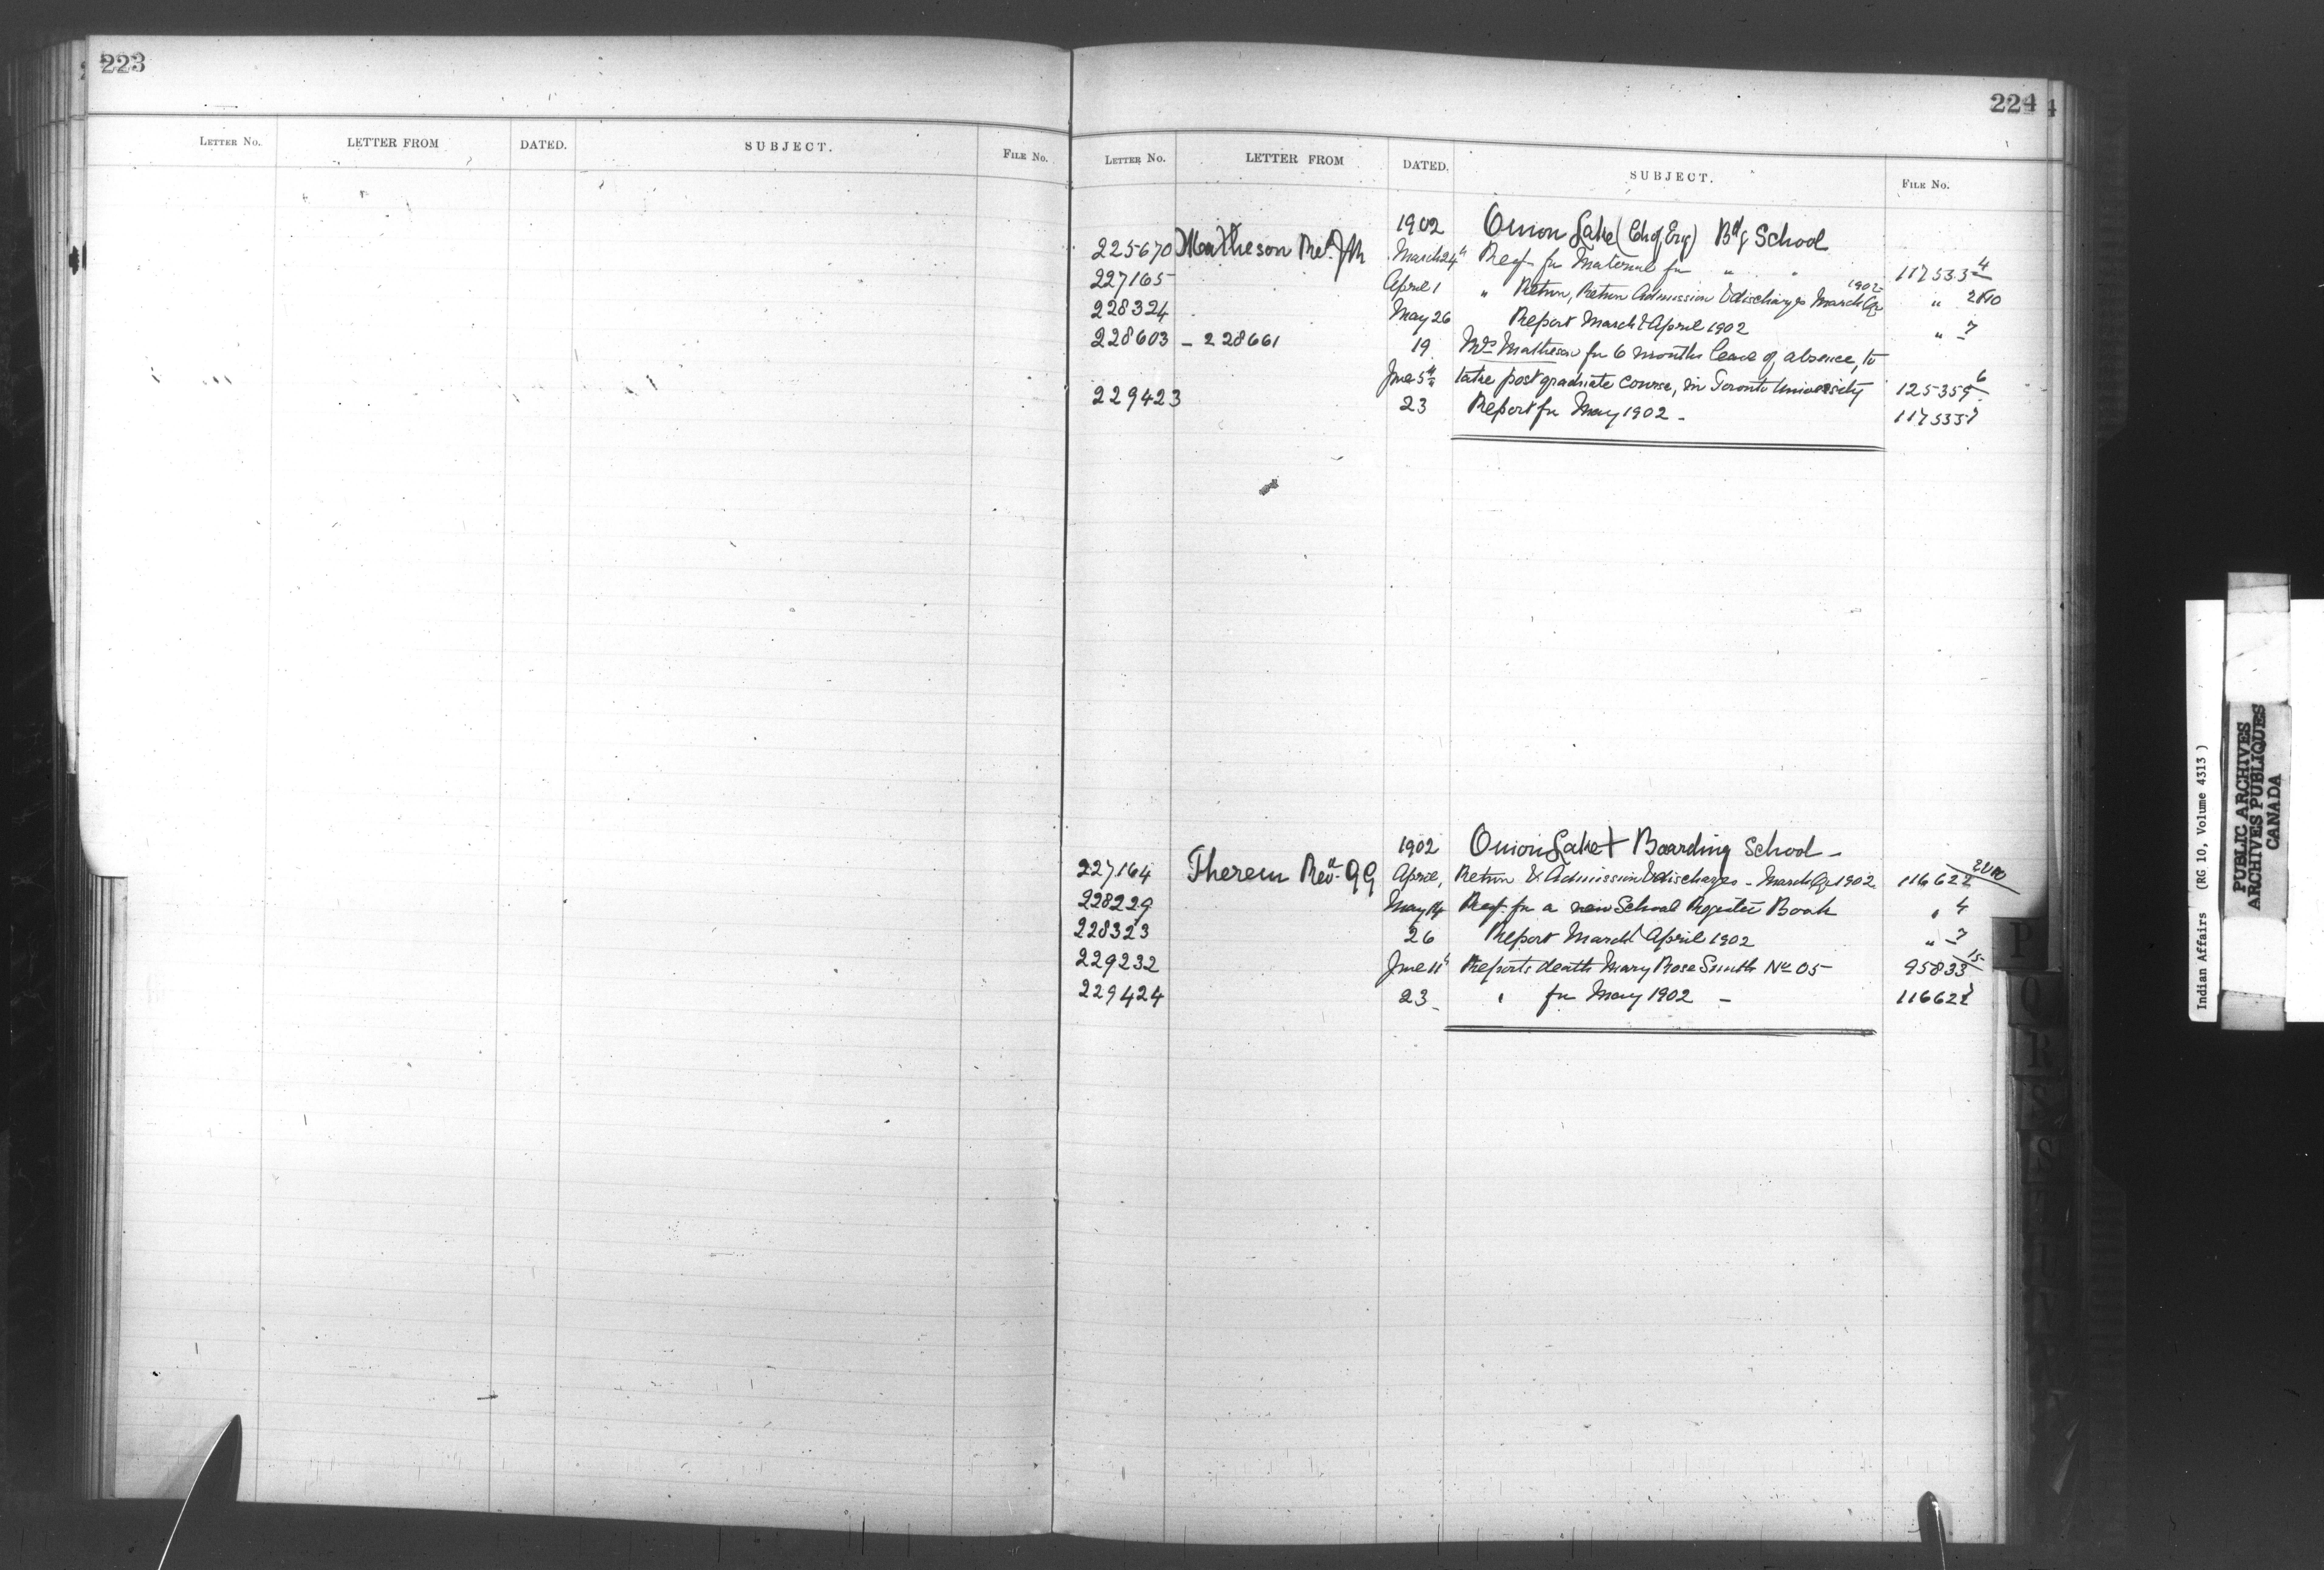 223
LETTER No. LETTER FROM DATED. SUBJECT. FILE No.
224
LETTER No. LETTER FROM DATED. SUBJECT. FILE No.
1902 Onion Lake (Ch of Eng) Bdg School
225670 Matheson Revd. J M March 24th Reqr. for Material for " " 117533-4
227165 April 1 " Return, Return Admission & discharges March Qr 1902 " 2&10
228324 May 26 Report March & April 1902 " 7
228603 - 228661 19 Mrs Matheson for 6 months leave of absence, to
June 5th take post graduate course, in Toronto University 125359-6
229423 23 Report for May 1902 - 117533-7
1902 Onion Lake + Boarding School -
227164 Therien Revd. G G April, Return & Admission & discharges - March Qr 1902 116622 2&10
228229 May 14 Reqr. for a new School Register Book " 4
228323 26 Report March & April 1902 " 7
229232 June 11th Reports death Mary Rose Smith No 05 - 95833-15
229424 23 - " for May 1902 - 116622
P
Q
R
S
Indian Affairs (RG 10, Volume 4313)
PUBLIC ARCHIVES
ARCHIVES PUBLIQUES
CANADA